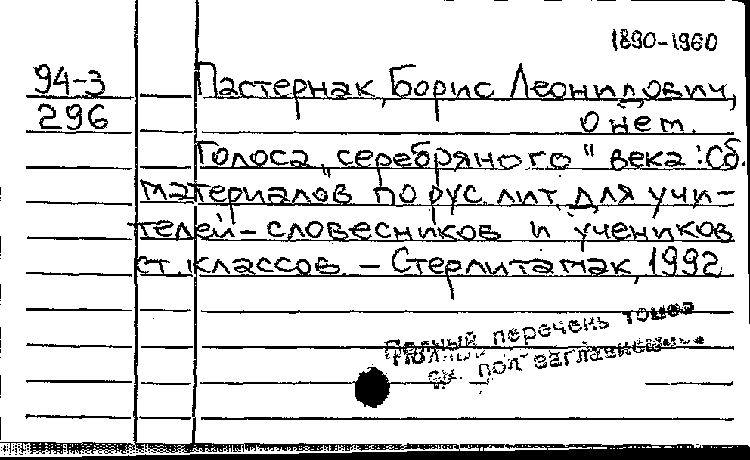 1890-1960
94-3 Пастернак, Борис Леонидович,
296 О нем.
Голоса „серебряного" века: Сб.
материалов по рус. лит. для учи-
телей-словесников и учеников
ст. классов. - Стерлитамак, 1992
Полный перечень томов
см. под заглавием